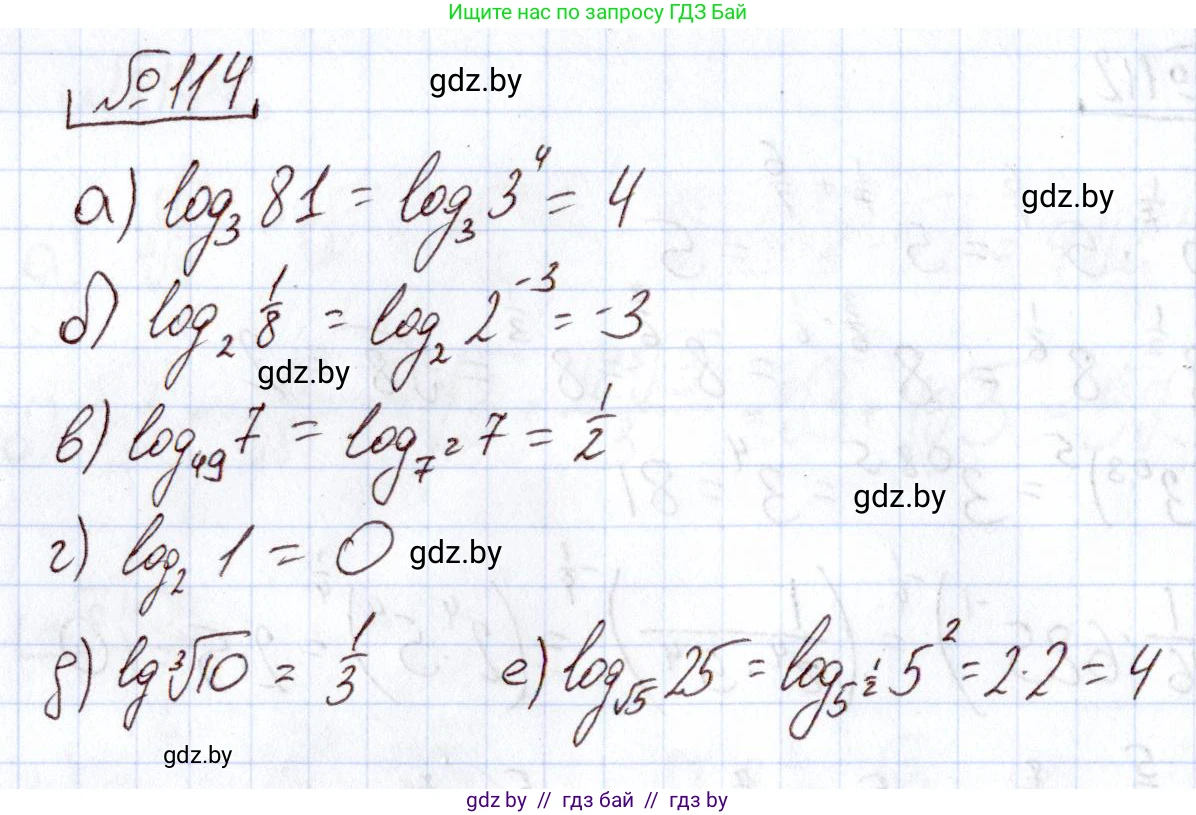 Ищите нас по запросу ГДЗ Бай
№114
gdz.by
а) log₃ 81 = log₃ 3⁴ = 4
gdz.by
б) log₂ 1/8 = log₂ 2⁻³ = -3
gdz.by
в) log₄₉ 7 = log₇² 7 = 1/2
gdz.by
г) log₂ 1 = 0
gdz.by
д) lg ³√10 = 1/3 е) log_√5 25 = log_5^(1/2) 5² = 2·2 = 4
gdz.by
gdz by // гдз бай // гдз by